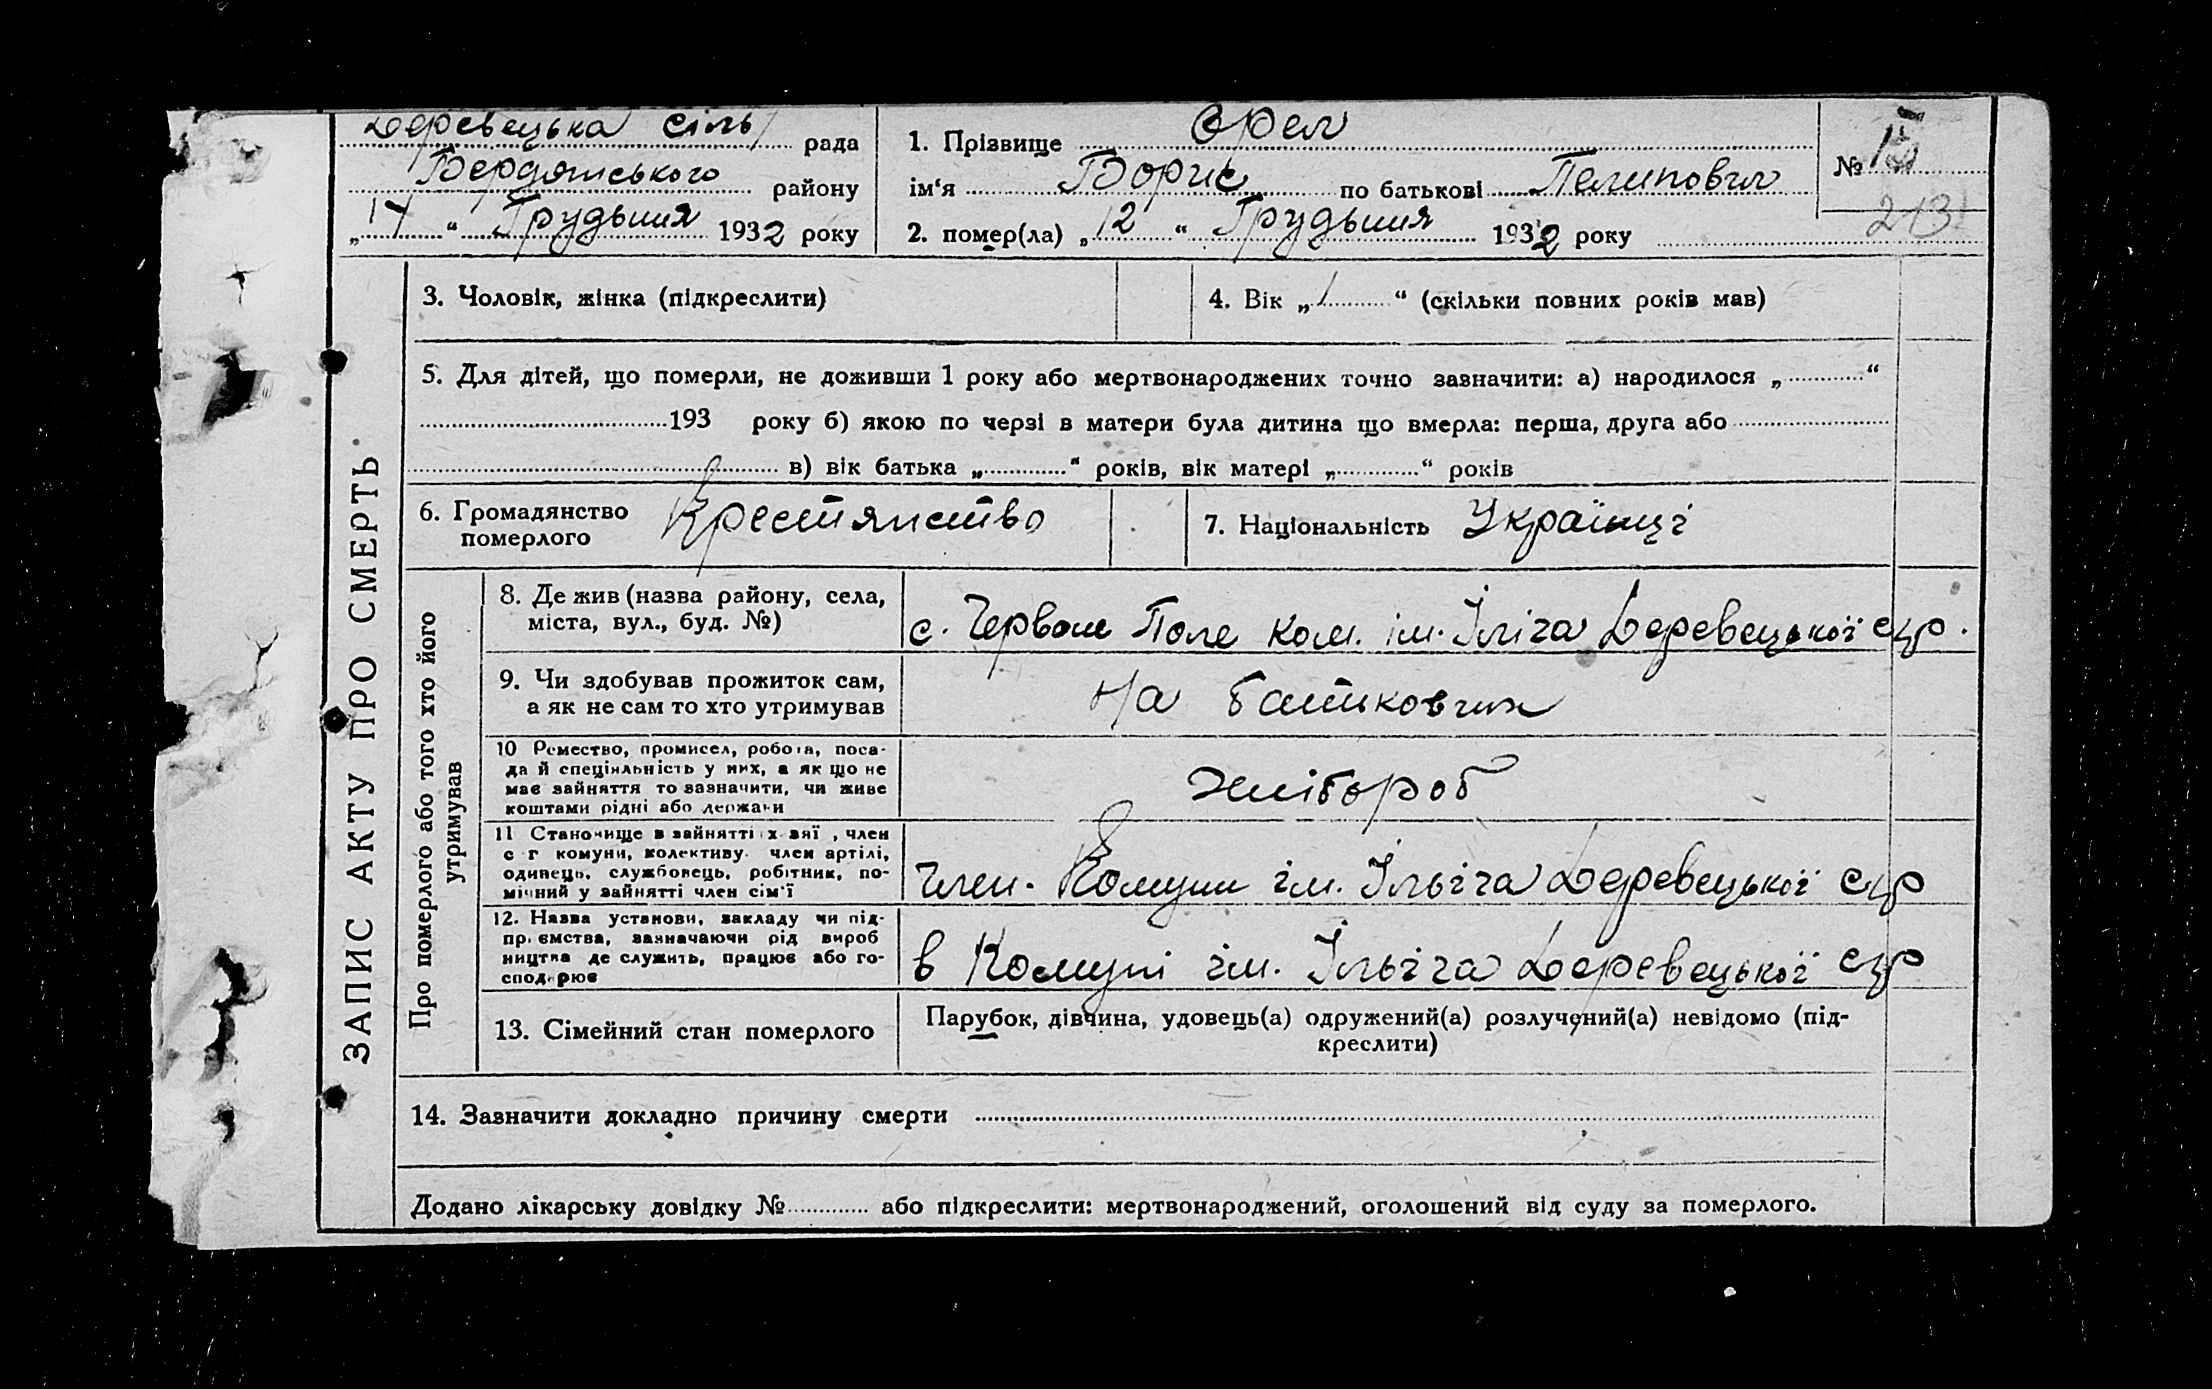 Деревецька сіль рада
Бердянського району
„ 17 “ Грудьння 1932 року
1. Прізвище Орел
ім‘я Борис по батькові Пелипович
2. помер(ла) „ 12 “ Грудьння 1932 року
№
213
ЗАПИС АКТУ ПРО СМЕРТЬ
3. Чоловік, жінка (підкреслити)
4. Вік „ 1 “ (скільки повних років мав)
5. Для дітей, що померли, не доживши 1 року або мертвонароджених точно зазначити: а) народилося „ “
193 року б) якою по черзі в матери була дитина що вмерла: перша, друга або
в) вік батька „ “ років, вік матері „ “ років
6. Громадянство
померлого
Крестянство
7. Національність Українці
Про померлого або того хто його
утримував
8. Де жив (назва району, села,
міста, вул., буд. №)
с. Червоне Поле ком. ім. Іліча Деревецької с/р.
9. Чи здобував прожиток сам,
а як не сам то хто утримував
На батьковим
10 Ремество, промисел, робота, поса-
да й спеціяльність у них, а як що не
має зайняття то зазначити, чи живе
коштами рідні або держави
хлібороб
11 Становище в зайнятті , член
с г комуни, колективу член артілі,
одинець, службовець, робітник, по-
мічний у зайнятті член сім‘ї
Член. Комуни ім. Ільіча Деревецької с/р
12. Назва установи, закладу чи під-
приємства, зазначаючи рід вироб
ництва де служить, працює або го-
сподарює
в Комуні ім. Ільіча Деревецької с/р
13. Сімейний стан померлого
Парубок, дівчина, удовець(а) одружений(а) розлучений(а) невідомо (під-
креслити)
14. Зазначити докладно причину смерти
Додано лікарську довідку № або підкреслити: мертвонароджений, оголошений від суду за померлого.